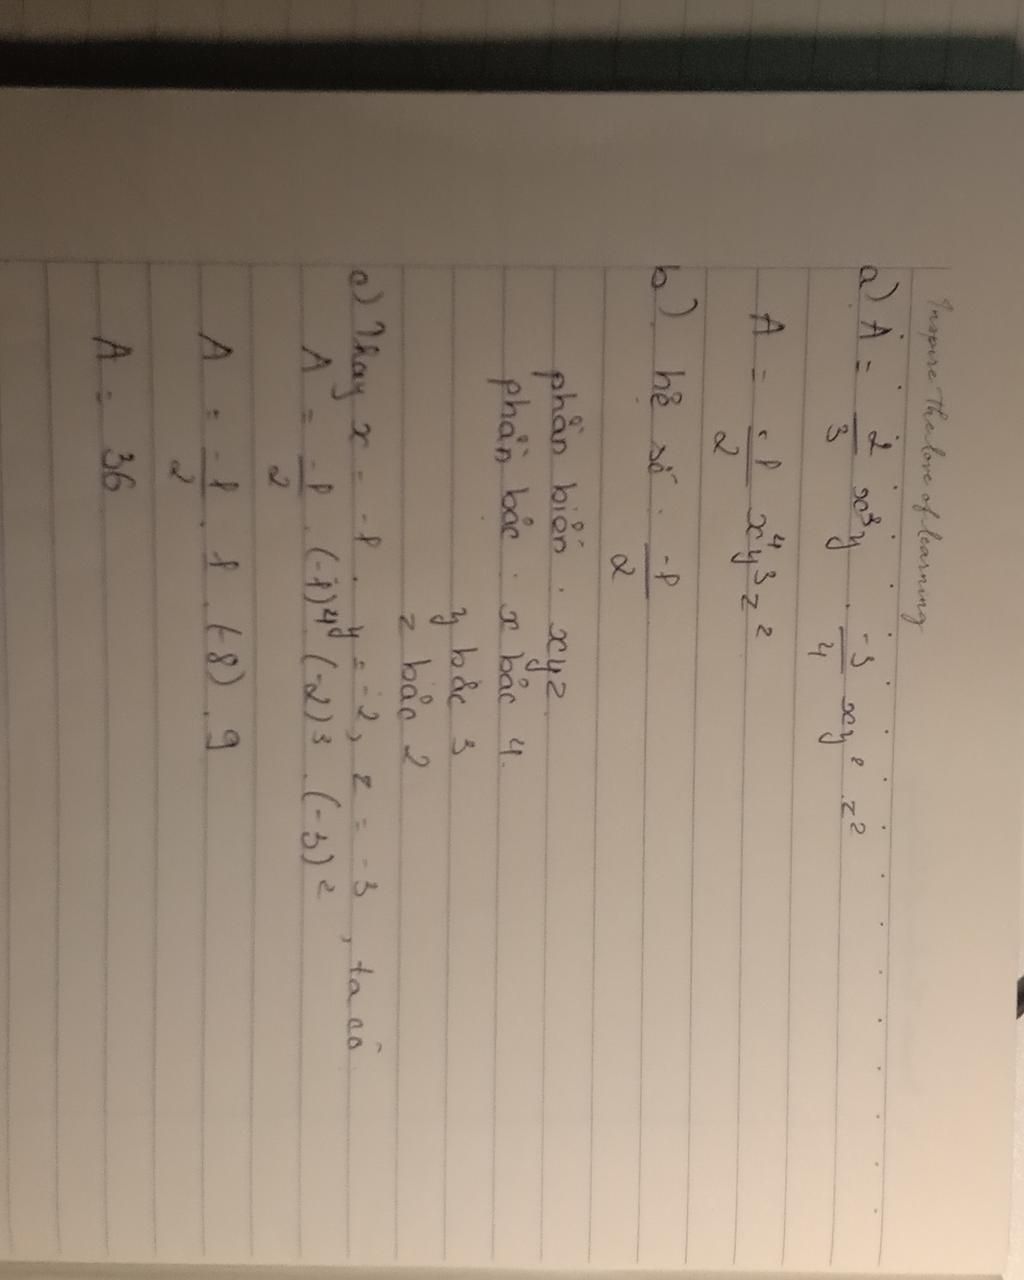 Inspire the love of learning
a) A = 2/3 x³y . -3/4 xy² z²
A = -1/2 x⁴y³z²
b) hệ số : -1/2
phần biến : xyz
phần bậc : x bậc 4.
y bậc 3
z bậc 2
c) Thay x = -1 . y = -2, z = -3 , ta có
A = -1/2 . (-1)⁴ . (-2)³ . (-3)²
A = -1/2 . 1 . (-8) . 9
A = 36